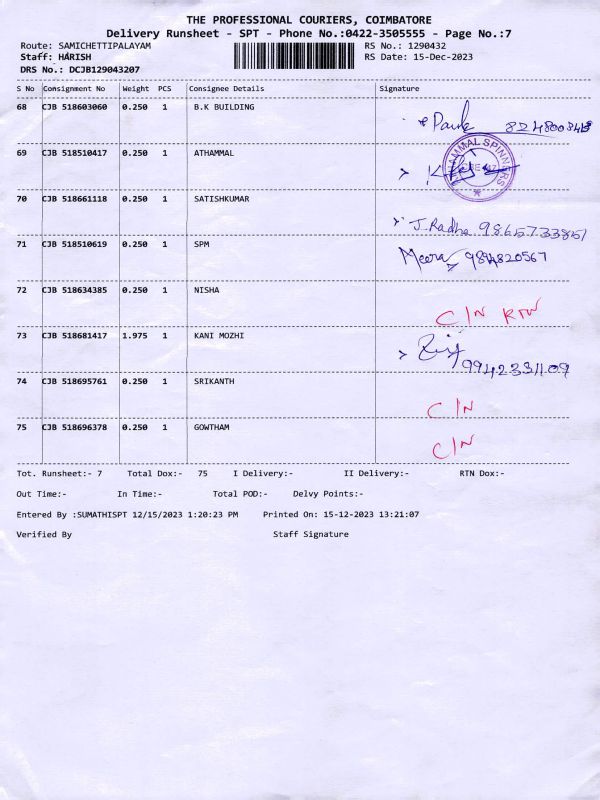 THE PROFESSIONAL COURIERS, COIMBATORE
Delivery Runsheet - SPT - Phone No.:0422-3505555 - Page No.:7
Route: SAMICHETTIPALAYAM RS No.: 1290432
Staff: HARISH RS Date: 15-Dec-2023
DRS No.: DCJB129043207
S No Consignment No Weight PCS Consignee Details Signature
68 CJB 518603060 0.250 1 B.K BUILDING
69 CJB 518510417 0.250 1 ATHAMMAL
70 CJB 518661118 0.250 1 SATISHKUMAR
J. Radha
71 CJB 518510619 0.250 1 SPM
Meera 9894820567
72 CJB 518634385 0.250 1 NISHA
C/N RTN
73 CJB 518681417 1.975 1 KANI MOZHI
9942331109
74 CJB 518695761 0.250 1 SRIKANTH
C/N
75 CJB 518696378 0.250 1 GOWTHAM
C/N
Tot. Runsheet:- 7 Total Dox:- 75 I Delivery:- II Delivery:- RTN Dox:-
Out Time:- In Time:- Total POD:- Delvy Points:-
Entered By :SUMATHISPT 12/15/2023 1:20:23 PM Printed On: 15-12-2023 13:21:07
Verified By Staff Signature